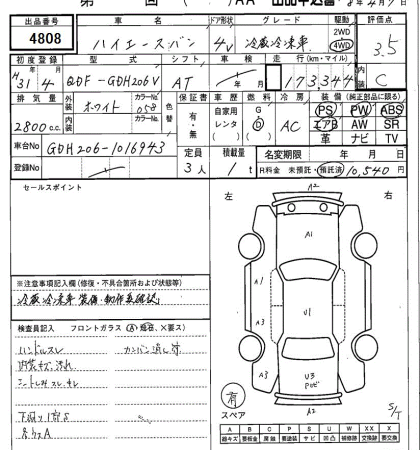 第 回 ( )/AA 出品申込書 8年4月9日
出品番号 車名 ドア形状 グレード 駆動 評価点
4808 ハイエースバン 4V 冷蔵冷凍車 2WD 4WD 3.5
初度登録 型式 シフト 車検 走行(km・マイル) 内装
H31年4月 QDF-GDH206V AT 年月 173,344 C
排気量 外装 カラーNo. 色替 保証書 車歴 燃料 冷房 装備(純正部品に限る)
2800c.c. ホワイト 058 有・無 自家用 レンタ G D AC PS PW ABS
内装 カラーNo. エアB AW SR
革 ナビ TV
車台No. GDH206-1016943 定員 積載量 名変期限 年月日
登録No 3人 1t R料金 未預託・預託済 10,540円
セールスポイント
左 右
A2
A1
A1
A3
U1
A3
U3
A2
※注意事項記入欄(修復・不具合箇所および状態等)
冷蔵冷凍車装備・動作未確認
検査員記入 フロントガラス(A)飛石、X要ス)
ハンドルスレ
内装キズ汚れ
シートしみスレ
下廻りサビS
有
スペア
S/T
A B G P S U W XX X
線キズ 要板金 要塗装 サビ 凹凸 補修跡 交換跡 要交換